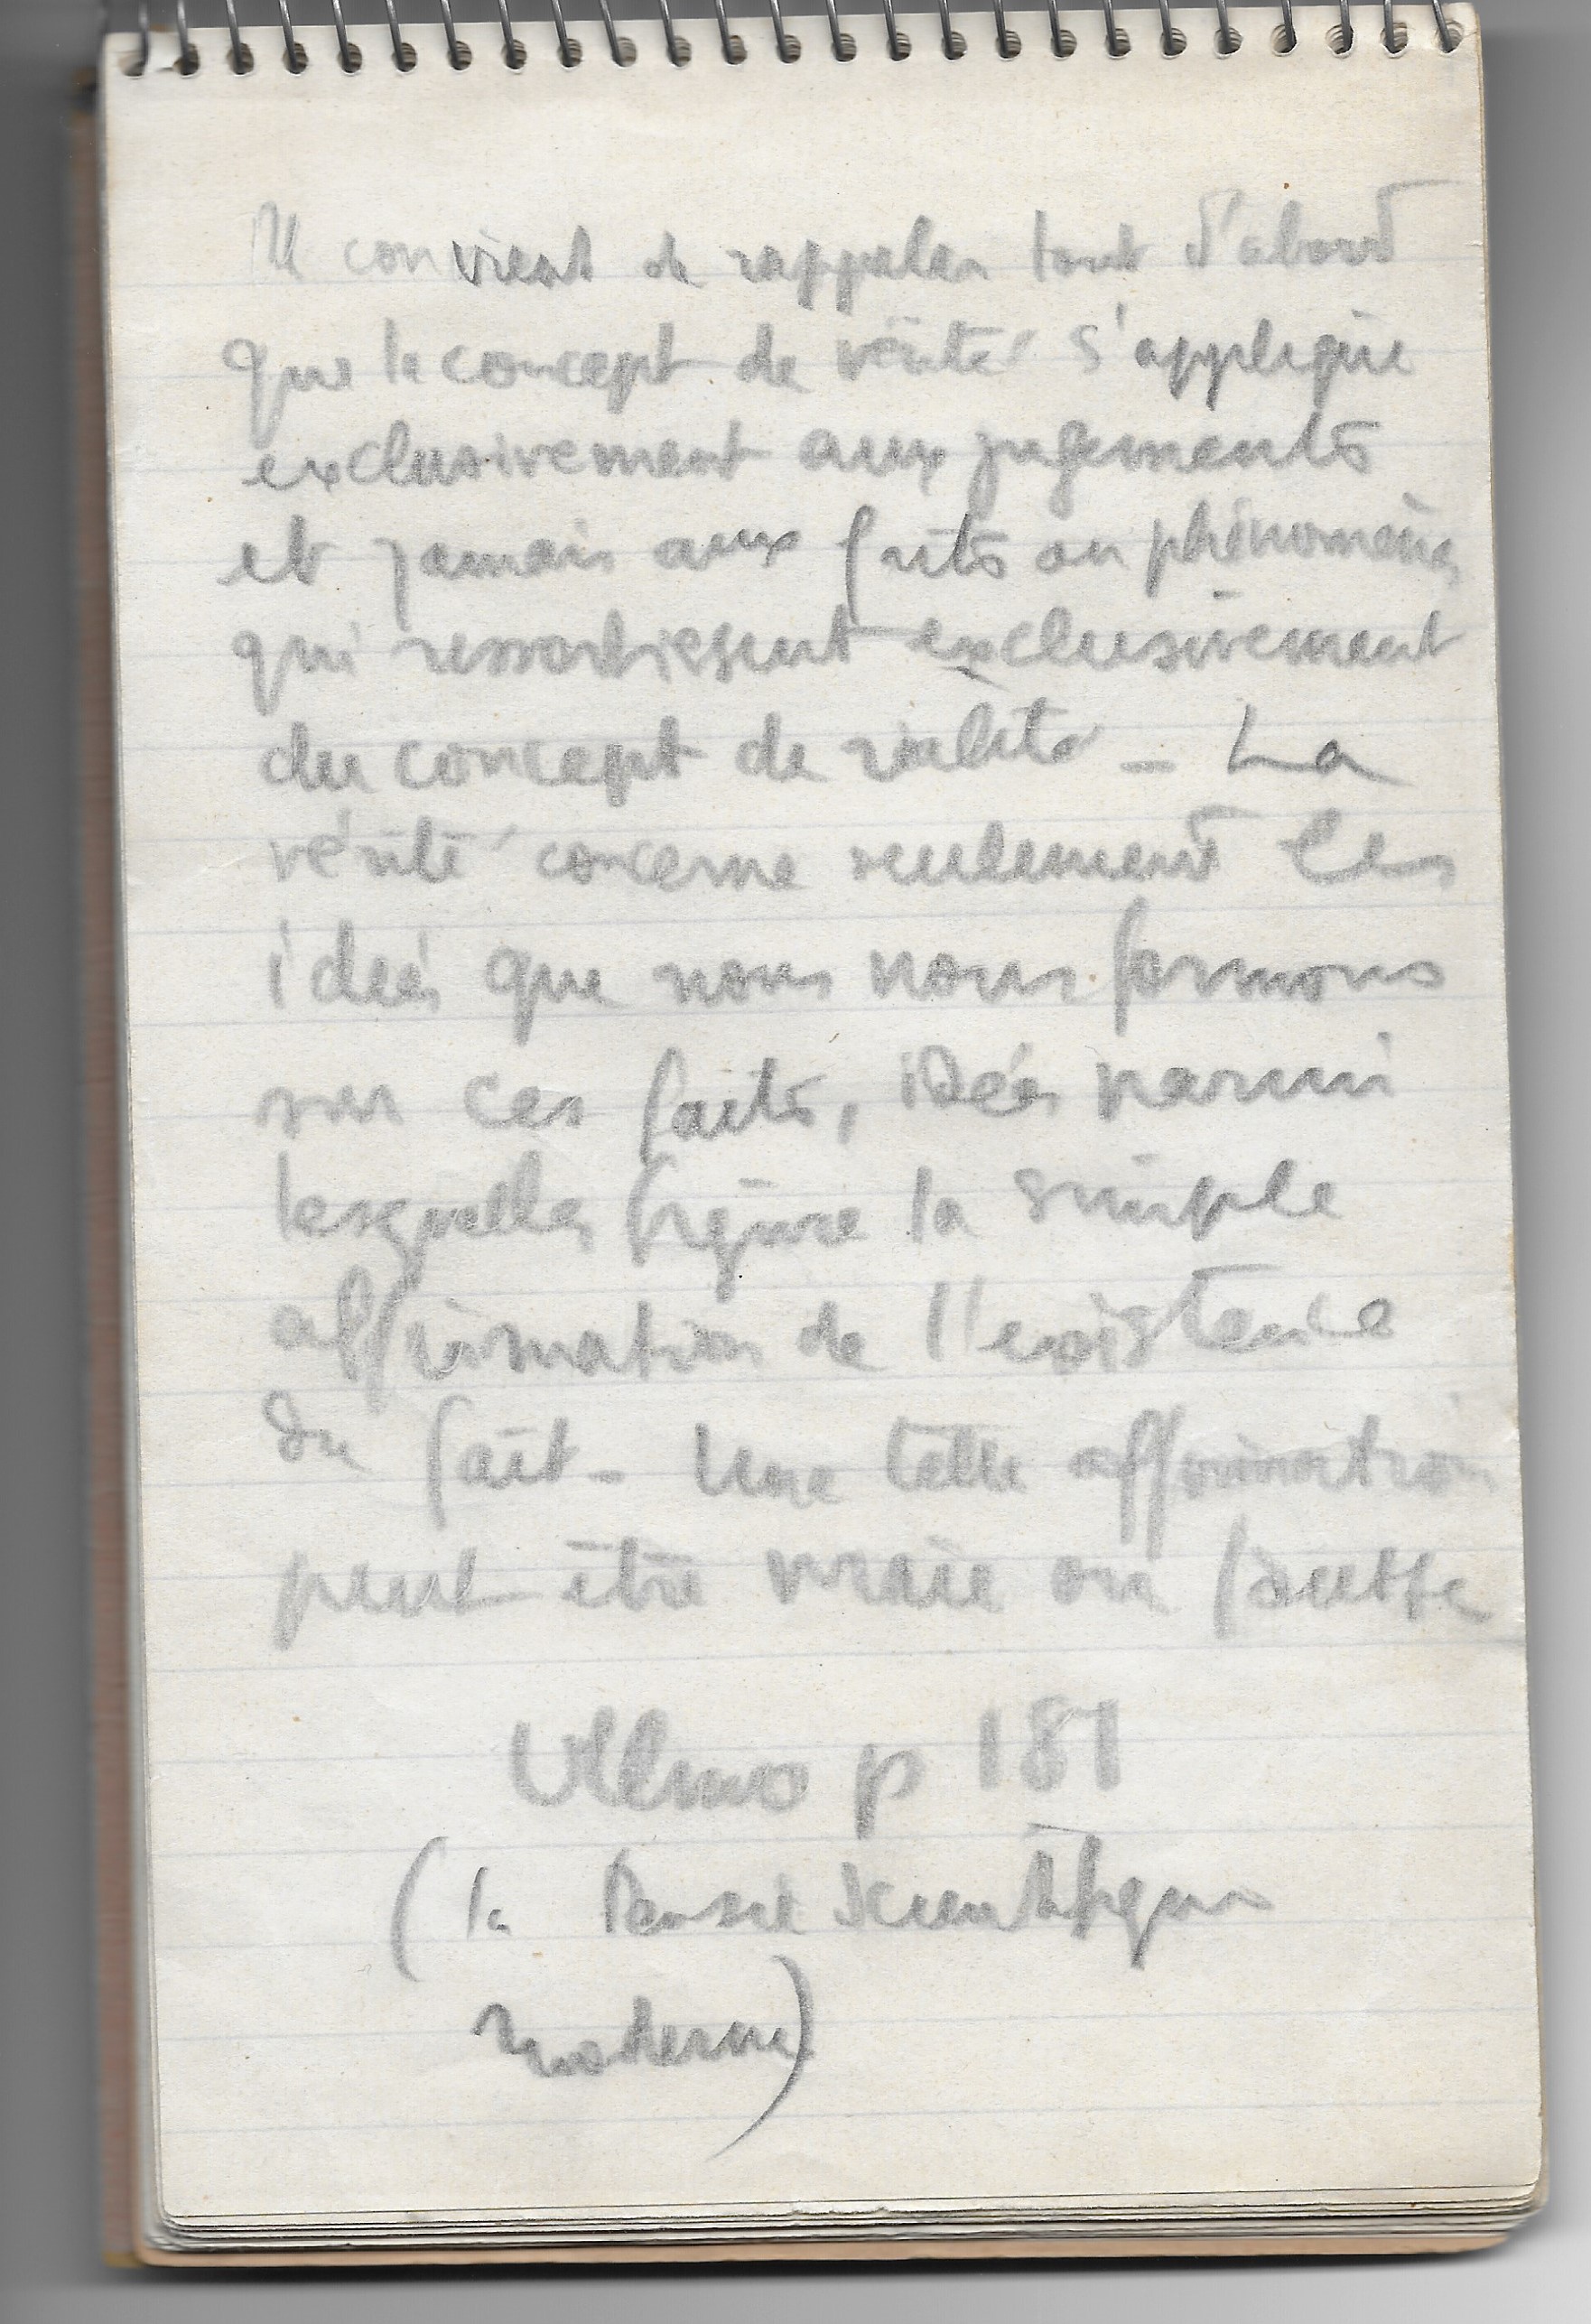 Il convient de rappeler tout d'abord
que le concept de vérité s'applique
exclusivement aux jugements
et jamais aux faits ou phénomènes
qui ressortissent exclusivement
du concept de réalité - La
vérité concerne seulement les
idées que nous nous formons
sur ces faits, idées parmi
lesquelles figure la simple
affirmation de l'existence
du fait - Une telle affirmation
peut être vraie ou fausse
Ullmo p 181
(la Pensée Scientifique
moderne)